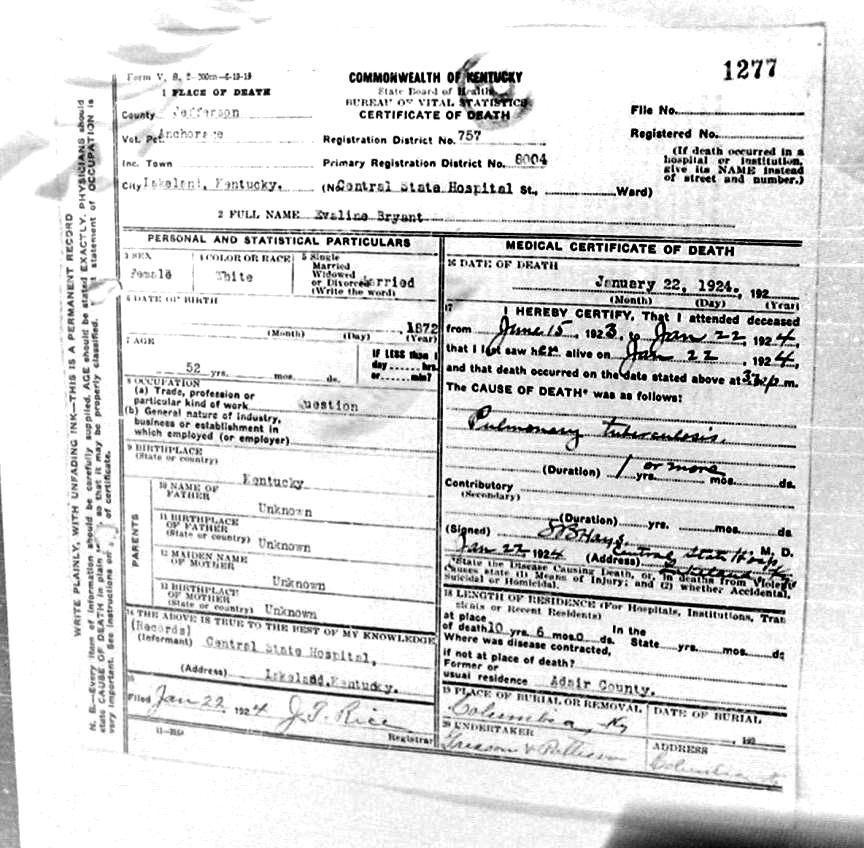 1277
Form V. S. 2-200m-6-19-19
COMMONWEALTH OF KENTUCKY
State Board of Health
BUREAU OF VITAL STATISTICS
CERTIFICATE OF DEATH
1 PLACE OF DEATH
County Jefferson
Vot. Pct. Anchorage
Inc. Town
City Lakeland, Kentucky.
Registration District No. 757
Primary Registration District No. 8004
(No Central State Hospital St., Ward)
File No.
Registered No.
(If death occurred in a
hospital or institution,
give its NAME instead
of street and number.)
2 FULL NAME Evaline Bryant
PERSONAL AND STATISTICAL PARTICULARS
3 SEX
Female
4 COLOR OR RACE
White
5 Single
Married
Widowed
or Divorced Married
(Write the word)
6 DATE OF BIRTH
1872
(Month) (Day) (Year)
7 AGE
52 yrs. mos. ds.
IF LESS than 1
day hrs.
or min?
8 OCCUPATION
(a) Trade, profession or
particular kind of work Question
(b) General nature of industry,
business or establishment in
which employed (or employer)
9 BIRTHPLACE
(State or country)
Kentucky
PARENTS
10 NAME OF
FATHER
Unknown
11 BIRTHPLACE
OF FATHER
(State or country) Unknown
12 MAIDEN NAME
OF MOTHER
Unknown
13 BIRTHPLACE
OF MOTHER
(State or country) Unknown
14 THE ABOVE IS TRUE TO THE BEST OF MY KNOWLEDGE
(Records)
(Informant) Central State Hospital,
(Address) Lakeland, Kentucky.
15
Filed Jan 22, 1924 J. T. Rice
Registrar
MEDICAL CERTIFICATE OF DEATH
16 DATE OF DEATH
January 22, 1924. , 192
(Month) (Day) (Year)
17
I HEREBY CERTIFY, That I attended deceased
from June 15, 1923, to Jan 22, 1924,
that I last saw her alive on Jan 22, 1924,
and that death occurred on the date stated above at p.m.
The CAUSE OF DEATH* was as follows:
Pulmonary tuberculosis.
(Duration) 1 or more yrs. mos. ds.
Contributory
(Secondary)
(Duration) yrs. mos. ds.
(Signed) Hays, M, D.
Jan 22 1924 (Address) Central State Hosp
Lakeland Ky
*State the Disease Causing Death, or, in deaths from Violent
Causes state (1) Means of Injury; and (2) whether Accidental,
Suicidal or Homicidal.
18 LENGTH OF RESIDENCE (For Hospitals, Institutions, Tran
sients or Recent Residents)
at place
of death 10 yrs. 6 mos. 0 ds. In the
State yrs. mos. ds
Where was disease contracted,
if not at place of death?
Former or
usual residence Adair County.
19 PLACE OF BURIAL OR REMOVAL
Columbia, Ky
DATE OF BURIAL
, 192
20 UNDERTAKER
ADDRESS
Columbia
WRITE PLAINLY, WITH UNFADING INK—THIS IS A PERMANENT RECORD
N. B.—Every item of information should be carefully supplied. AGE should be stated EXACTLY. PHYSICIANS should
state CAUSE OF DEATH in plain so that it may be properly classified. statement of OCCUPATION is
very important. See instructions on of certificate.